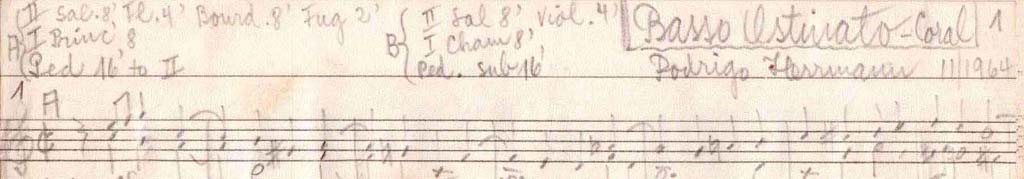 A { II Sal. 8' Fl. 4' Bourd. 8' Fug 2'
I Princ 8
Ped 16' to II
B { II Sal 8' Viol. 4'
I Cham 8'
Ped. sub 16'
Basso Ostinato - Coral 1
Rodrigo Herrmann 11/1964
1 A